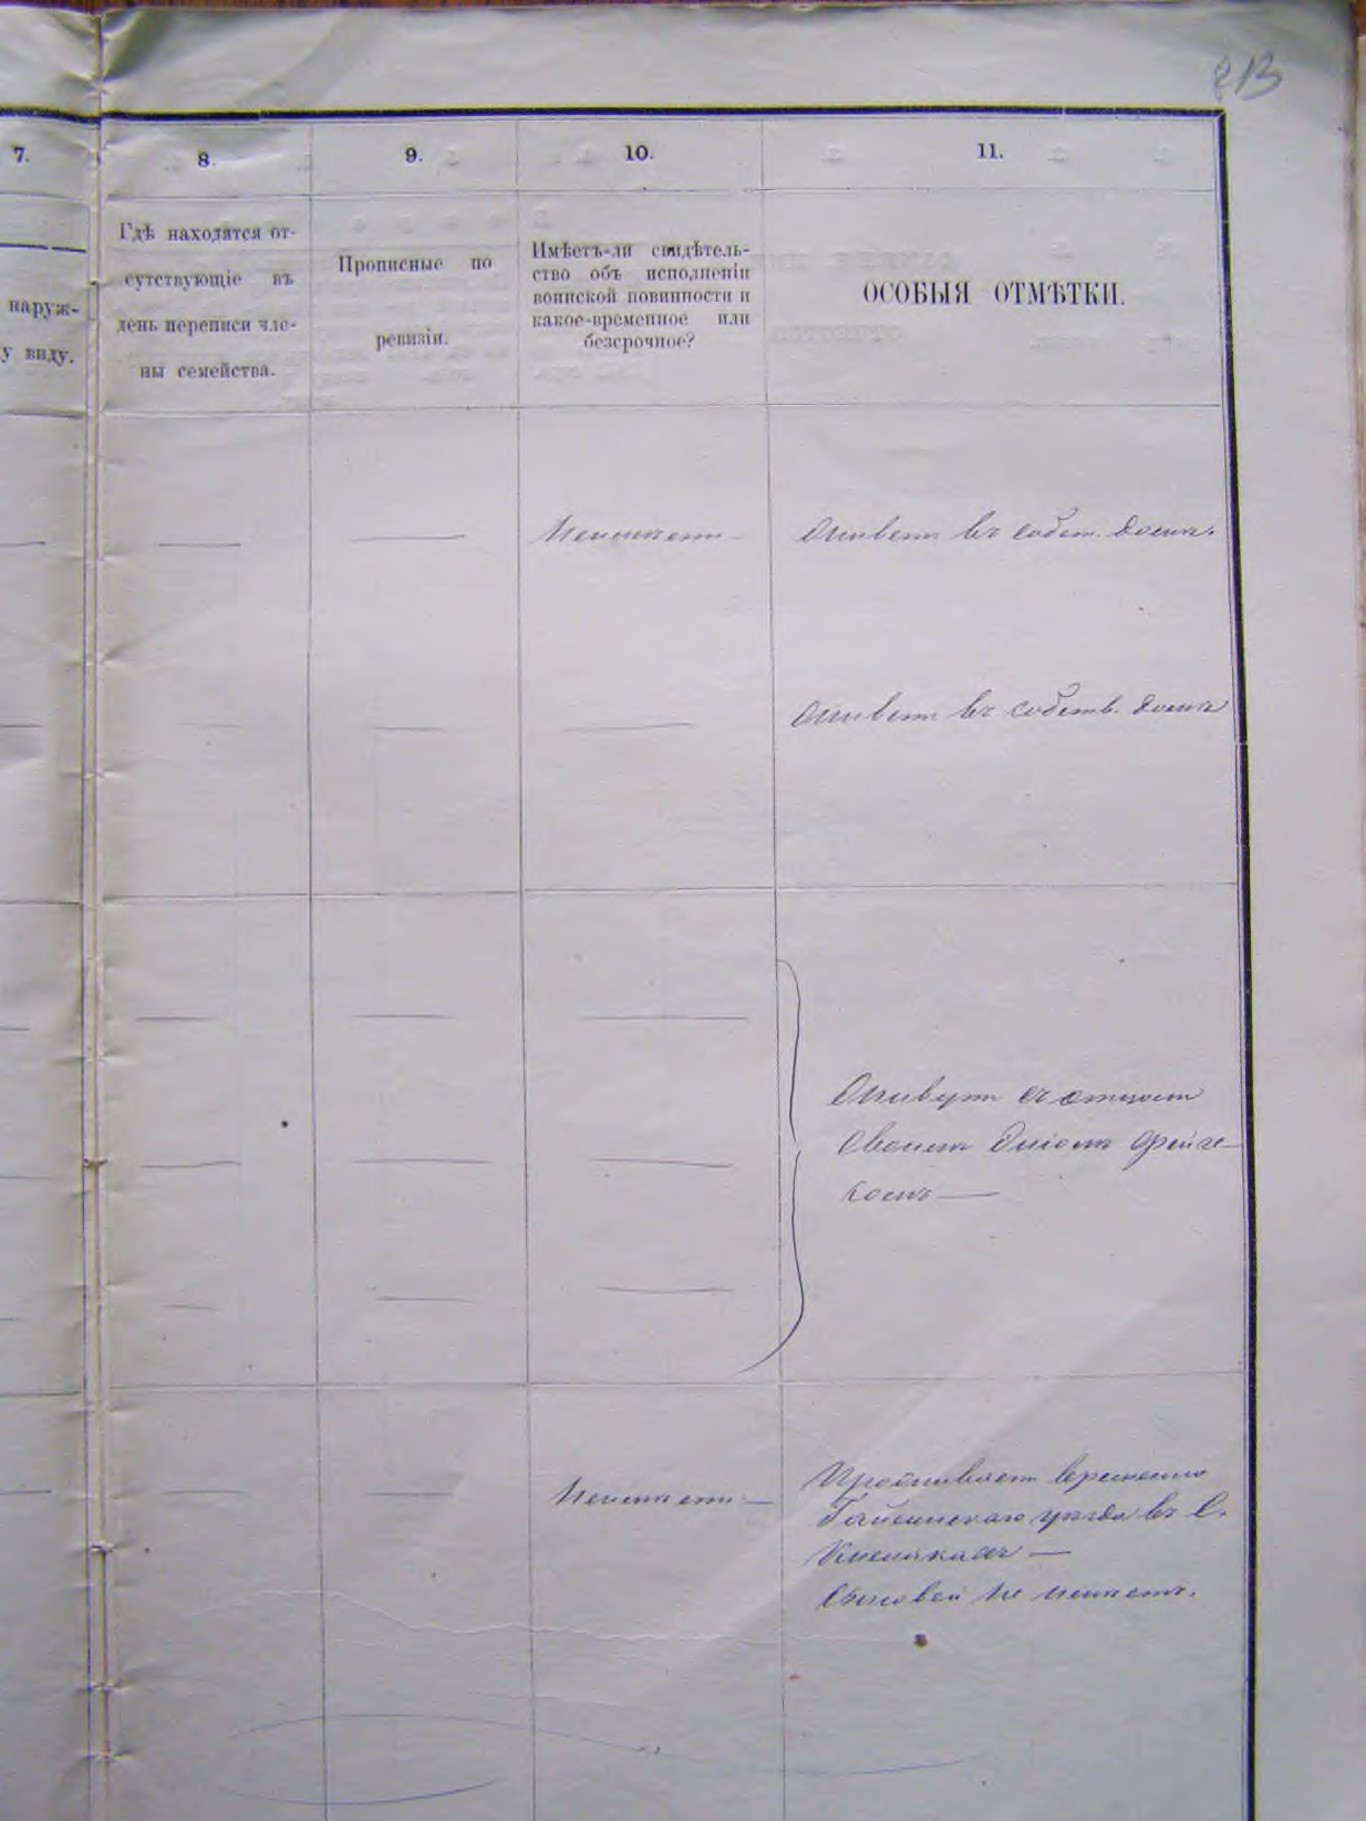 213
7.
8.
9.
10.
11.
наруж-
у виду.
Гдѣ находятся от-
сутствующіе въ
день переписи чле-
ны семейства.
Прописные по
ревизіи.
Имѣетъ-ли свидѣтель-
ство объ исполненіи
воинской повинности и
какое-временное или
безсрочное?
ОСОБЫЯ ОТМѢТКИ.
Неимѣетъ
Живетъ въ собст. домѣ.
Живетъ въ собств. домѣ
Живутъ съ отцомъ
своимъ
комъ
Неимѣетъ
Проживаетъ временно
Гайсинскаго уѣзда въ с.
Сыновей не имѣетъ.